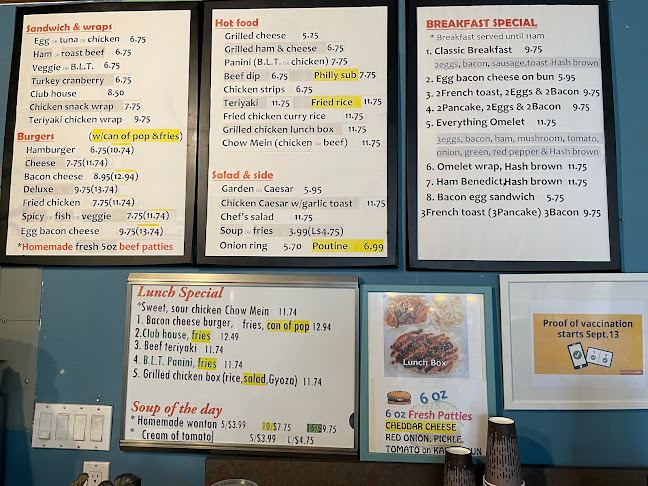 Sandwich & wraps
Egg or tuna or chicken 6.75
Ham or roast beef 6.75
Veggie or B.L.T. 6.75
Turkey cranberry 6.75
Club house 8.50
Chicken snack wrap 7.75
Teriyaki chicken wrap 9.75
Burgers (w/can of pop &fries)
Hamburger 6.75(10.74)
Cheese 7.75(11.74)
Bacon cheese 8.95(12.94)
Deluxe 9.75(13.74)
Fried chicken 7.75(11.74)
Spicy or fish or veggie 7.75(11.74)
Egg bacon cheese 9.75(13.74)
*Homemade fresh 5oz beef patties
Hot food
Grilled cheese 5.25
Grilled ham & cheese 6.75
Panini (B.L.T. or chicken) 7.75
Beef dip 6.75 Philly sub 7.75
Chicken strips 6.75
Teriyaki 11.75 Fried rice 11.75
Fried chicken curry rice 11.75
Grilled chicken lunch box 11.75
Chow Mein (chicken or beef) 11.75
Salad & side
Garden or Caesar 5.95
Chicken Caesar w/garlic toast 11.75
Chef's salad 11.75
Soup or fries 3.99(L$4.75)
Onion ring 5.70 Poutine 6.99
BREAKFAST SPECIAL
* Breakfast served until 11am
1. Classic Breakfast 9.75
2eggs, bacon, sausage,toast Hash brown
2. Egg bacon cheese on bun 5.95
3. 2French toast, 2Eggs & 2Bacon 9.75
4. 2Pancake, 2Eggs & 2Bacon 9.75
5. Everything Omelet 11.75
3eggs, bacon, ham, mushroom, tomato,
onion, green, red pepper & Hash brown
6. Omelet wrap, Hash brown 11.75
7. Ham Benedict,Hash brown 11.75
8. Bacon egg sandwich 5.75
3French toast (3Pancake) 3Bacon 9.75
Lunch Special
*Sweet, sour chicken Chow Mein 11.74
1. Bacon cheese burger, fries, can of pop 12.94
2.Club house, fries 12.49
3. Beef teriyaki 11.74
4. B.L.T. Panini, fries 11.74
5. Grilled chicken box(rice,salad,Gyoza) 11.74
Soup of the day
* Homemade wonton 5/$3.99 10/$7.75 15/$9.75
* Cream of tomato S/$3.99 L/$4.75
Lunch Box
6 oz
6 oz Fresh Patties
CHEDDAR CHEESE
RED ONION, PICKLE,
TOMATO on
Proof of vaccination
starts Sept.13